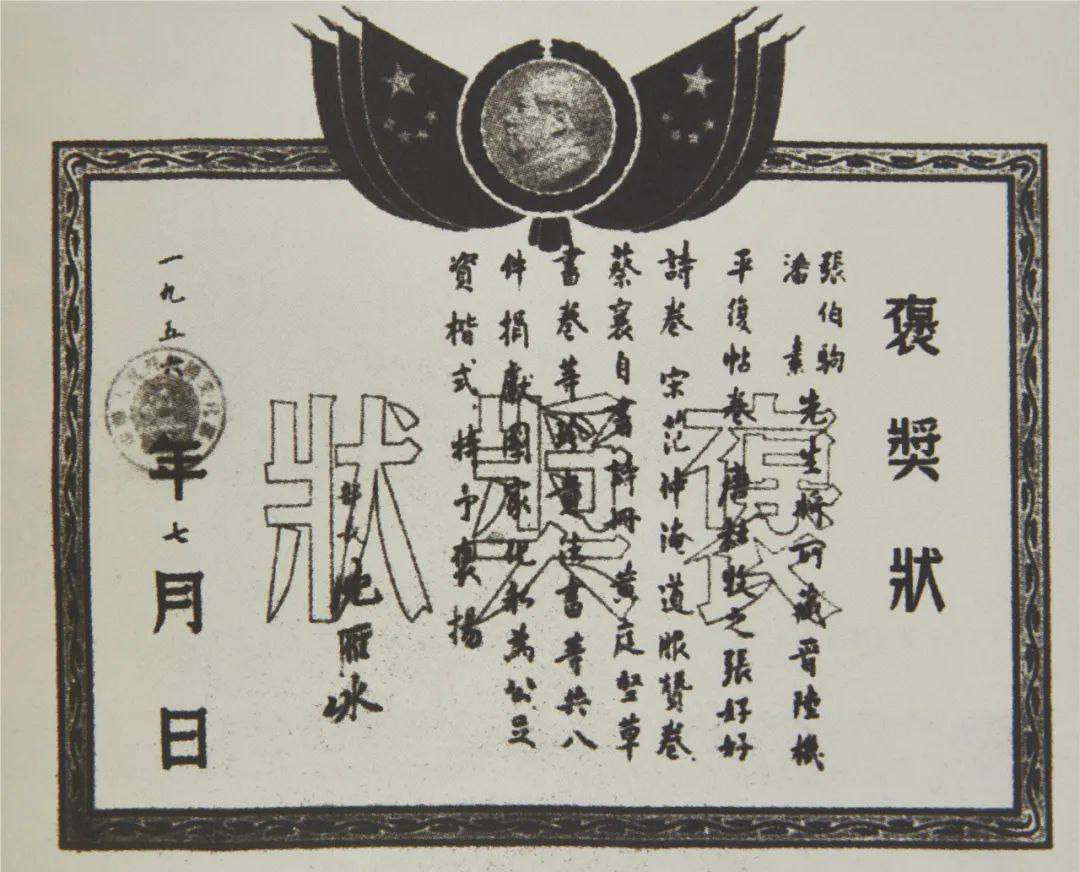 褒獎狀
張伯駒
潘素
先生將所藏晉陸機
平復帖卷唐杜牧之張好好
詩卷宋范仲淹道服贊卷
蔡襄自書詩冊黃庭堅草
書卷等珍貴法書等共八
件捐獻國家化私為公足
資楷式特予褒揚
部長沈雁冰
一九五六年七月日
褒獎狀